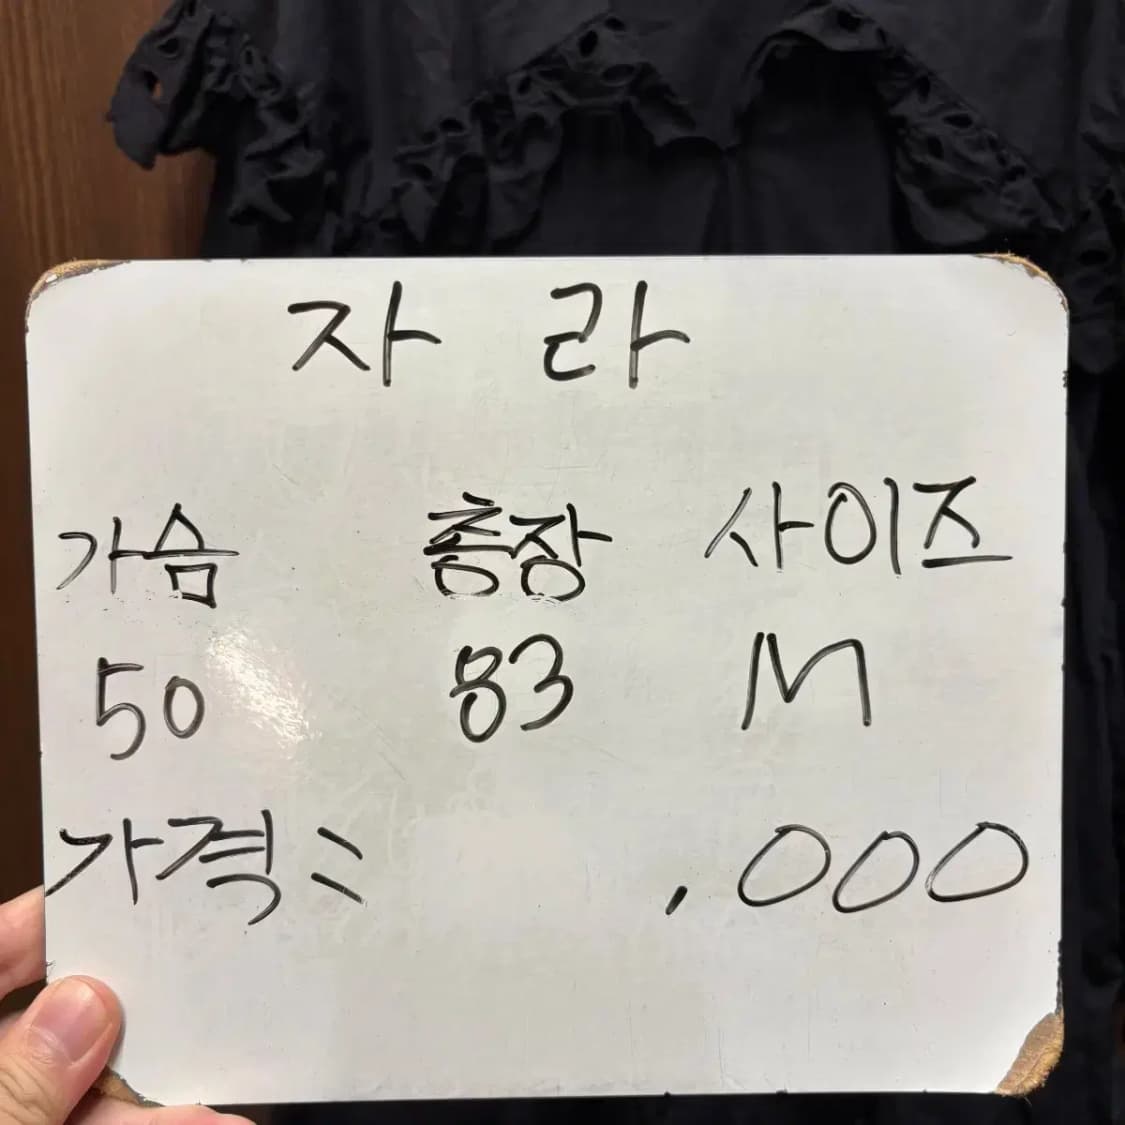 자 라
가슴 총장 사이즈
50 83 M
가격 : .000